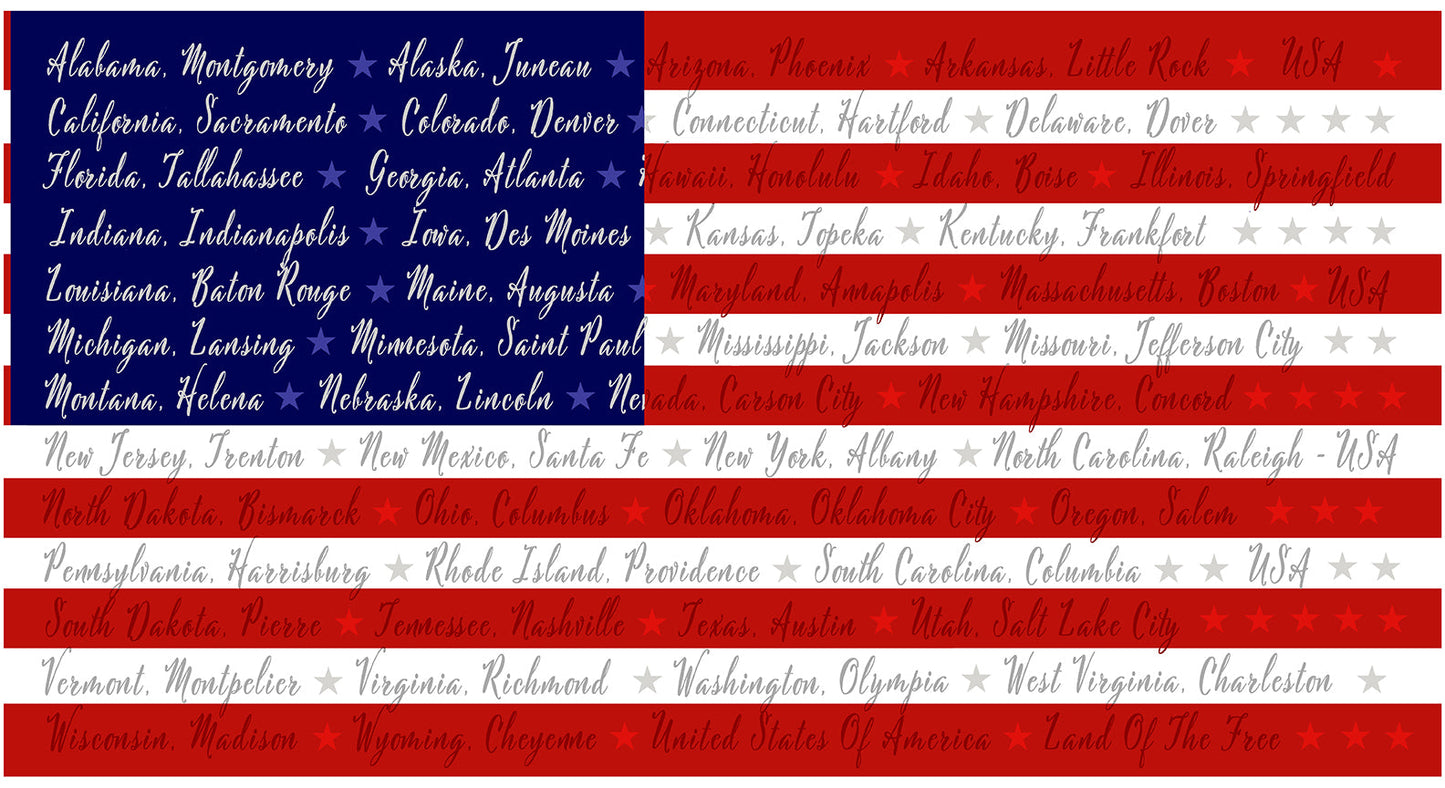 Alabama, Montgomery ★ Alaska, Juneau ★ Arizona, Phoenix ★ Arkansas, Little Rock ★ USA ★
California, Sacramento ★ Colorado, Denver ★ Connecticut, Hartford ★ Delaware, Dover ★ ★ ★ ★
Florida, Tallahassee ★ Georgia, Atlanta ★ Hawaii, Honolulu ★ Idaho, Boise ★ Illinois, Springfield
Indiana, Indianapolis ★ Iowa, Des Moines ★ Kansas, Topeka ★ Kentucky, Frankfort ★ ★ ★ ★
Louisiana, Baton Rouge ★ Maine, Augusta ★ Maryland, Annapolis ★ Massachusetts, Boston ★ USA
Michigan, Lansing ★ Minnesota, Saint Paul ★ Mississippi, Jackson ★ Missouri, Jefferson City ★ ★
Montana, Helena ★ Nebraska, Lincoln ★ Nevada, Carson City ★ New Hampshire, Concord ★ ★ ★ ★
New Jersey, Trenton ★ New Mexico, Santa Fe ★ New York, Albany ★ North Carolina, Raleigh - USA
North Dakota, Bismarck ★ Ohio, Columbus ★ Oklahoma, Oklahoma City ★ Oregon, Salem ★ ★ ★
Pennsylvania, Harrisburg ★ Rhode Island, Providence ★ South Carolina, Columbia ★ ★ USA ★ ★
South Dakota, Pierre ★ Tennessee, Nashville ★ Texas, Austin ★ Utah, Salt Lake City ★ ★ ★ ★ ★
Vermont, Montpelier ★ Virginia, Richmond ★ Washington, Olympia ★ West Virginia, Charleston ★
Wisconsin, Madison ★ Wyoming, Cheyenne ★ United States Of America ★ Land Of The Free ★ ★ ★